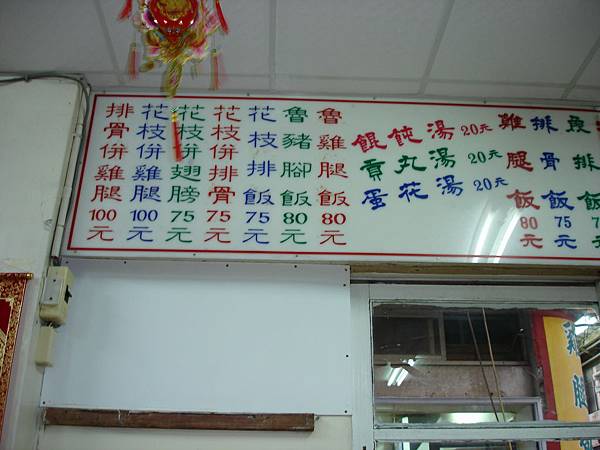 排骨併雞腿100元
花枝併雞腿100元
花枝併翅膀75元
花枝併排骨75元
花枝排飯75元
魯豬腳飯80元
魯雞腿飯80元
餛飩湯20元
貢丸湯20元
蛋花湯20元
雞腿飯80元
排骨飯75元
排飯7
雞腿